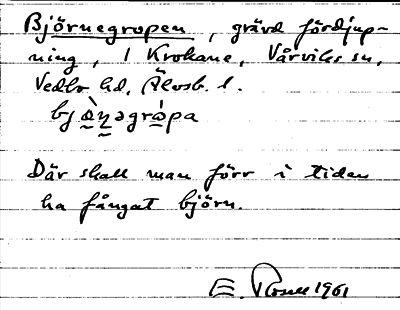 Björnegropen, grävd fördjup-
ning, i Krokane, Vårviks sn,
Vedbo hd, Älvsb. l.
bjø̀ṇəgrópa
Där skall man förr i tiden
ha fångat björn.
E. Rosell 1961